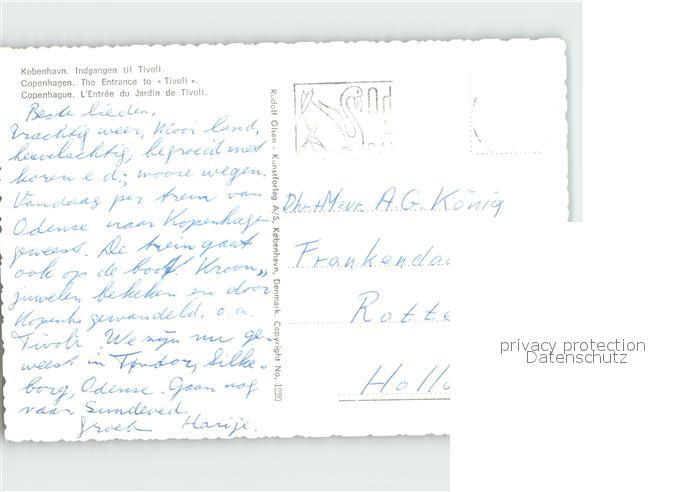 København. Indgangen til Tivoli.
Copenhagen. The Entrance to « Tivoli ».
Copenhague. L'Entrée du Jardin de Tivoli.
Beste lieden,
Prachtig weer, Mooi land,
heuvelachtig, begroeid met
koren e d; mooie wegen.
Vandaag per trein van
Odense naar Kopenhagen
geweest. De trein gaat
ook op de boot. Kroon„
juwelen bekeken en door
Kopenh gewandeld. o.a.
Tivoli. We zijn nu ge„
weest in Tondor, Silke„
borg, Odense. Gaan nog
naar Sundeved.
groet Marije.
Rudolf Olsen - Kunstforlag A/S, København, Denmark. Copyright No. 1220
Dhr+Mevr. A.G. König
Frankendaa
Rotte
Holla
privacy protection
Datenschutz